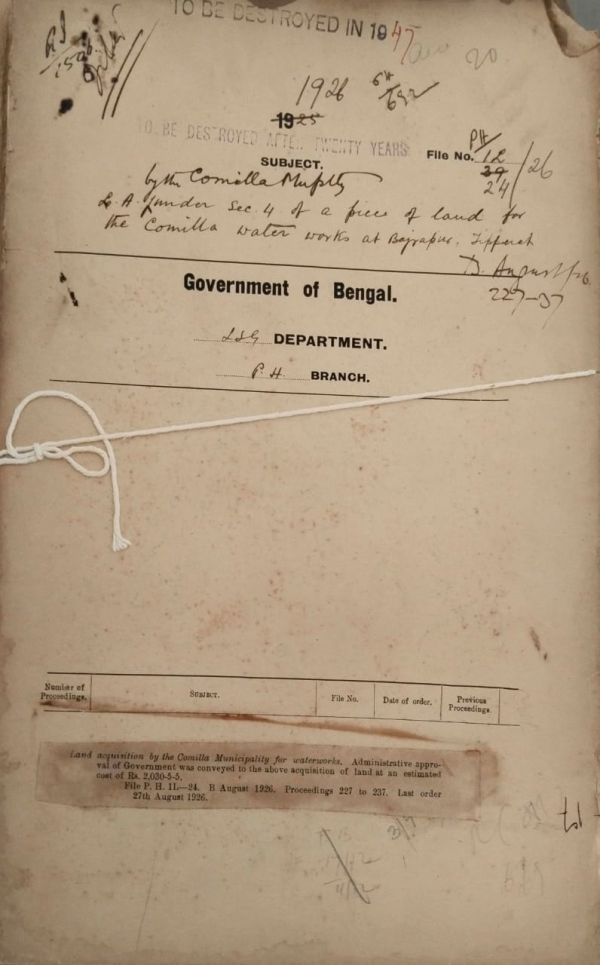 TO BE DESTROYED IN 1947
20
1926
1925
TO BE DESTROYED AFTER TWENTY YEARS
SUBJECT.
File No. PH/1L/26
39
24
by the Comilla Muplty
L. A. under Sec. 4 of a piece of land for
the Comilla water works at Bajrapur, Tipperah
B. August/26
227-37
Government of Bengal.
LSG DEPARTMENT.
P. H. BRANCH.
Number of Proceedings. SUBJECT. File No. Date of order. Previous Proceedings.
Land acquisition by the Comilla Municipality for waterworks. Administrative appro-
val of Government was conveyed to the above acquisition of land at an estimated
cost of Rs. 2,030-5-5.
File P. H. 1L—24. B August 1926. Proceedings 227 to 237. Last order
27th August 1926.